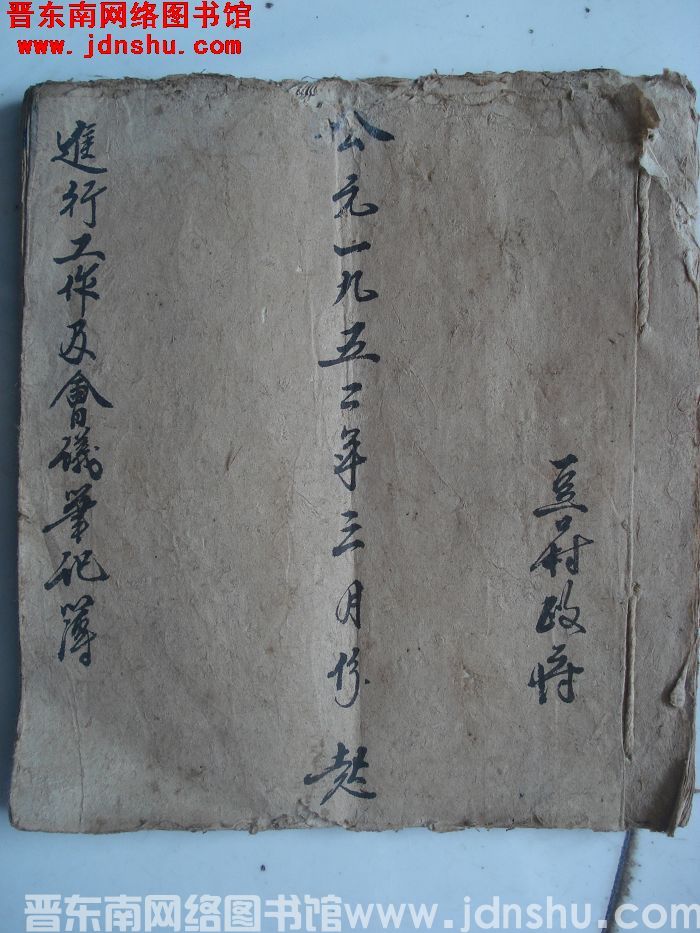 晋东南网络图书馆
www.jdnshu.com
豆村政府
公元一九五二年三月份起
進行工作及會議筆記簿
晋东南网络图书馆www.jdnshu.com